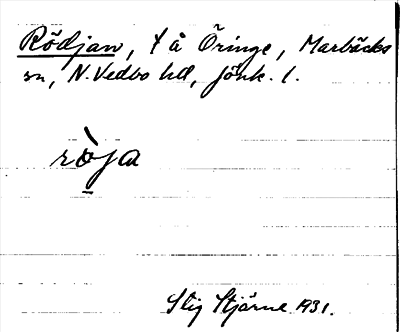 Rödjan, t å Öringe, Marbäcks
sn, N. Vedbo hd, Jönk. l.
rò̱ja
Stig Stjärne 1931.